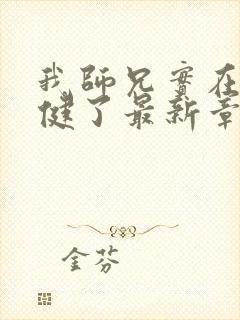 我師兄實在
健了最新章
金芬